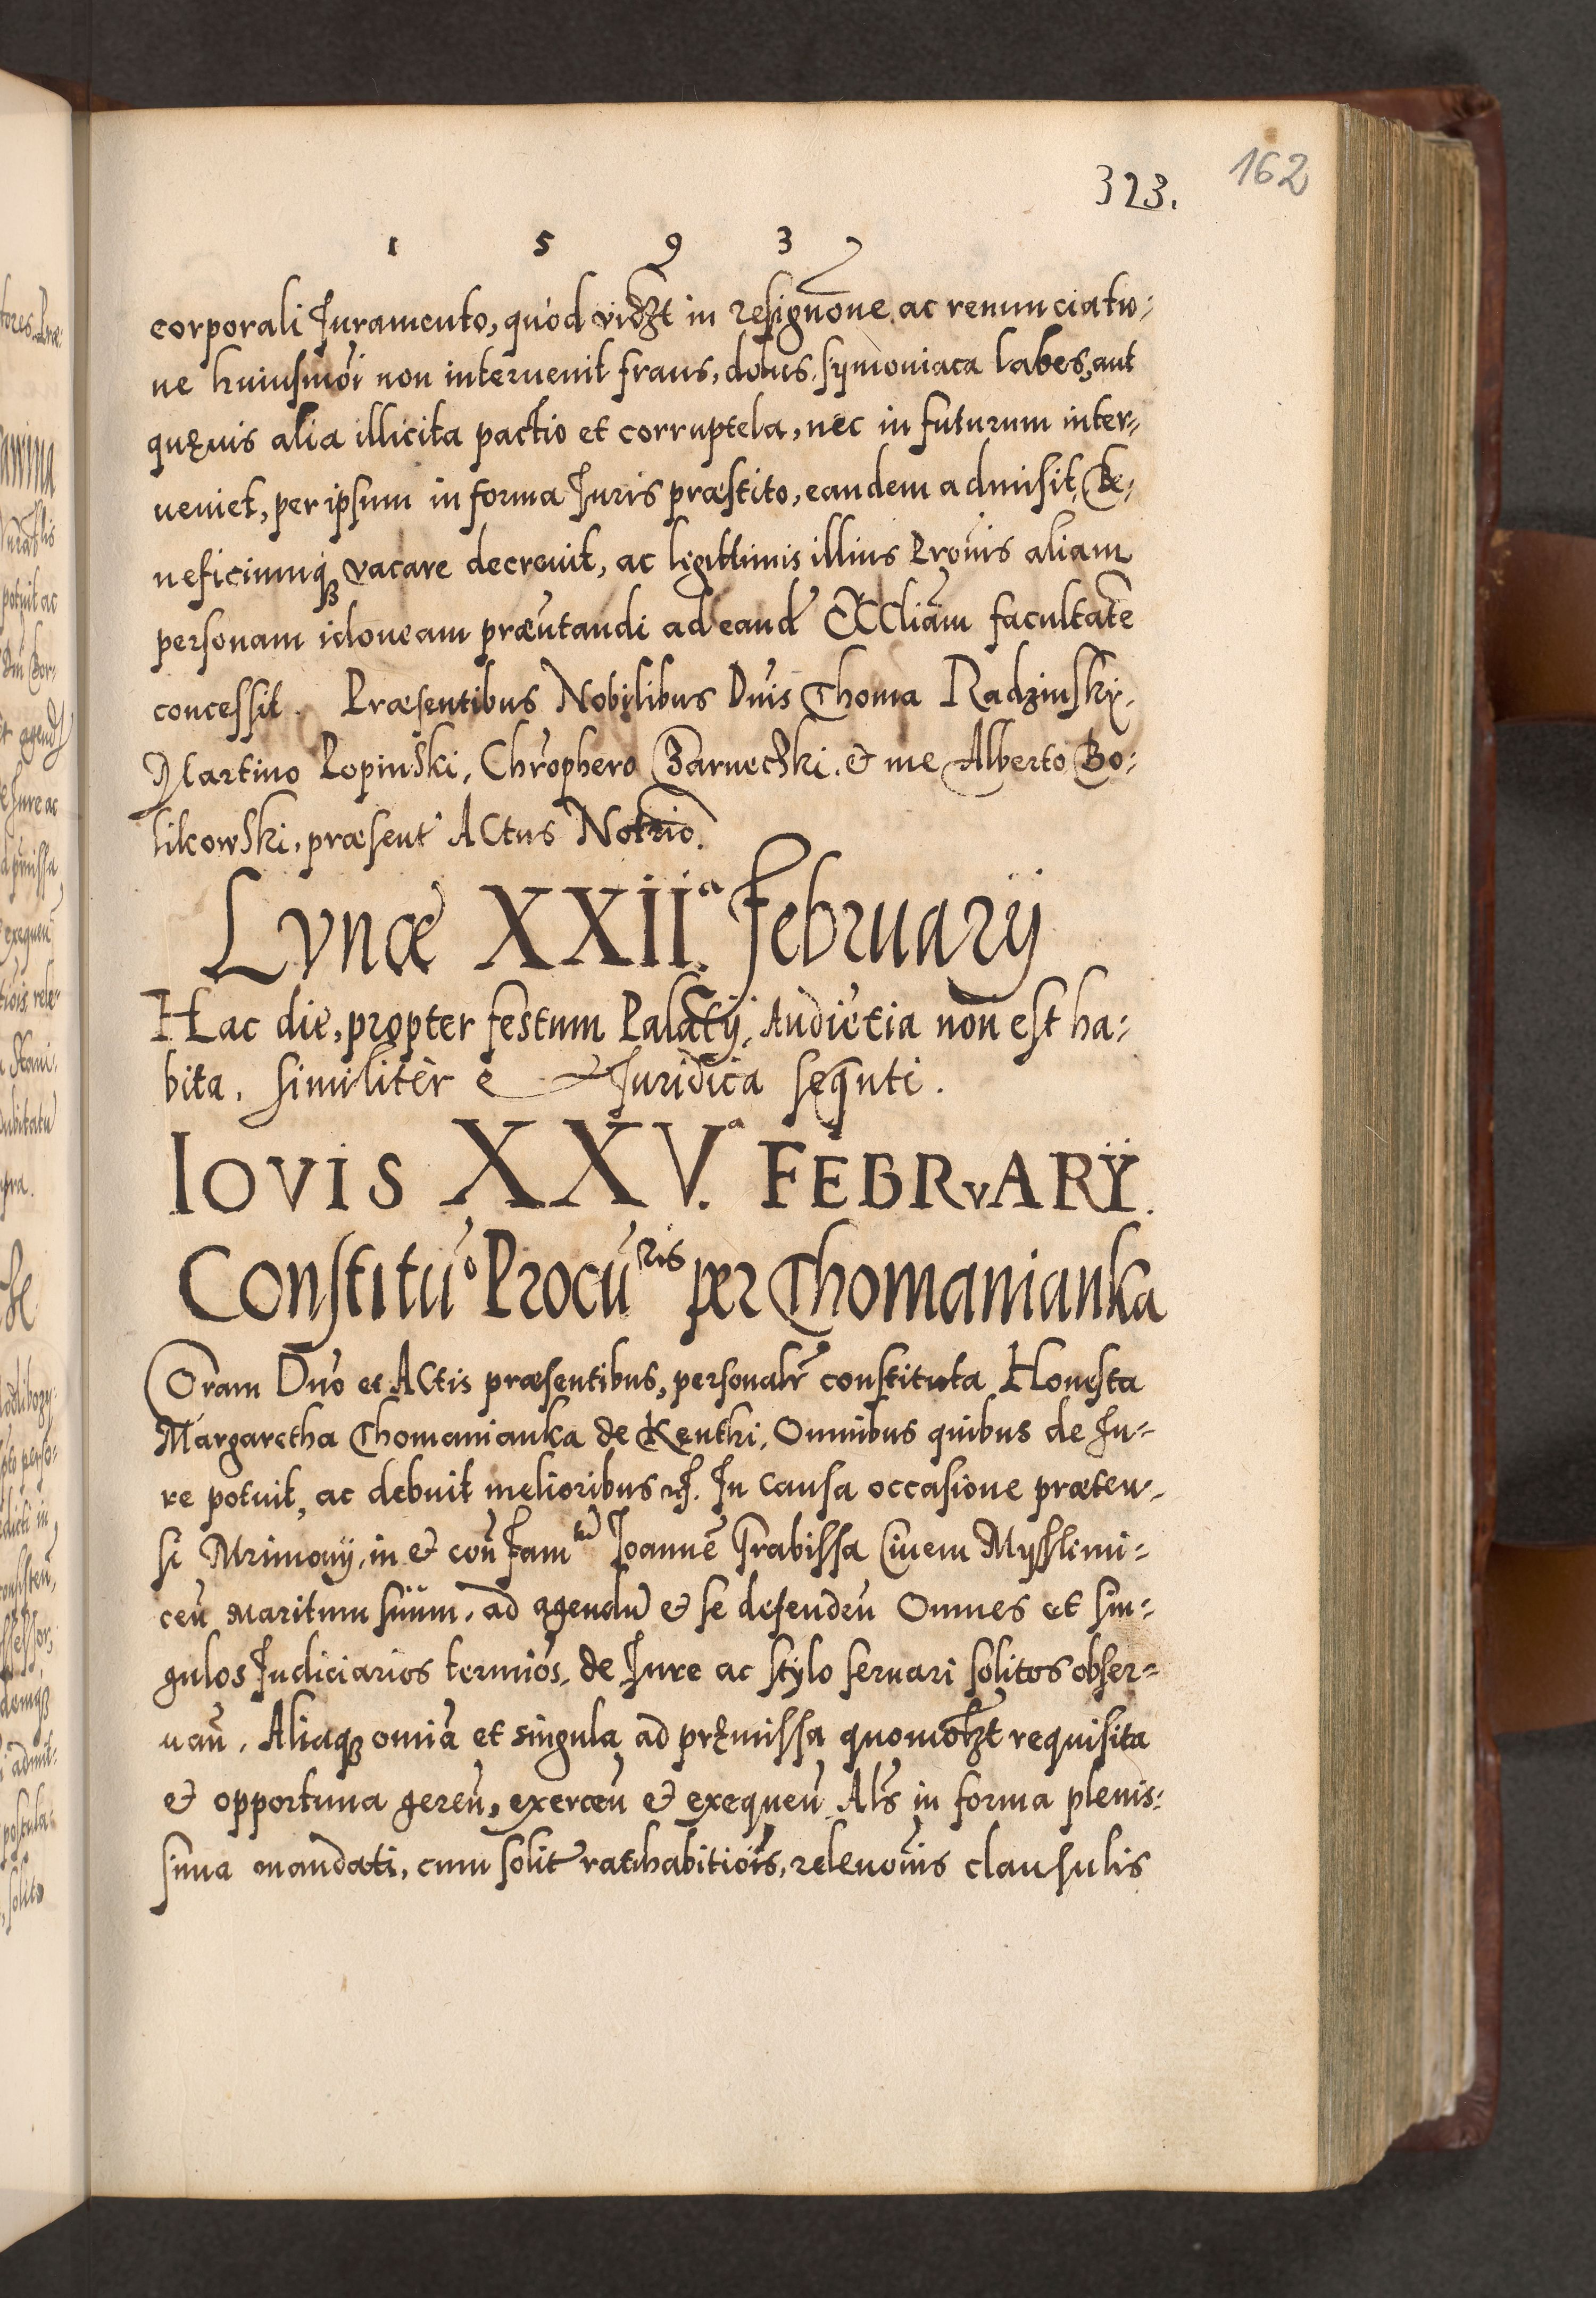 323.
162
1 5 9 3
corporali Juramento, quod vidzt in resignōne ac renunciatio-
ne huiusmōi non interuenit fraus, dolus, symoniaca labes, aut
quęuis alia illicita pactio et corruptela, nec in futurum inter-
ueniet, per ipsum in forma Juris præstito, eandem admisit, Be-
neficiumq₃ vacare decreuit, ac legittimis illius Pro̅nis aliam
personam idoneam præn̄tandi ad eand̄ ECCliam facultatē
concessit. Præsentibus Nobilibus Dn̄is Thoma Radzinsky,
Martino Lopinski, Chrōphero Zarneczki, & me Alberto Bo-
likowski, præsent' ACtus Notrio.
Lvnæ XXII.ª february
Hac die, propter festum Palatij, Audiētia non est ha-
bita. similiter è Juridica seqnti.
IOVIS XXV.ª FEBRvARY.
Constitūo Procūris per Thomanianka
Coram Dn̄o et ACtis præsentibus, personalr̄ constituta Honesta
Margaretha Thomanianka de Kęnthi, Omnibus quibus de Ju-
re potuit, ac debuit melioribus etc. In causa occasione præten-
si Mrimonij, in & con̄ famtū Joannē Grabissa Ciuem Mysslimi-
cen̄ Maritum suum, ad agendū & se defenden̄ Omnes et sin-
gulos Judiciarios termiōs, de Jure ac stylo seruari solitos obser-
uan̄. Aliaq₃ omia et singula ad pręmissa quomolzt requisita
& opportuna geren̄, exercen̄ & exequen̄. Als̄ in forma plenis-
sima mandati, cum solit' ratihabitiōis, releuōnis clausulis